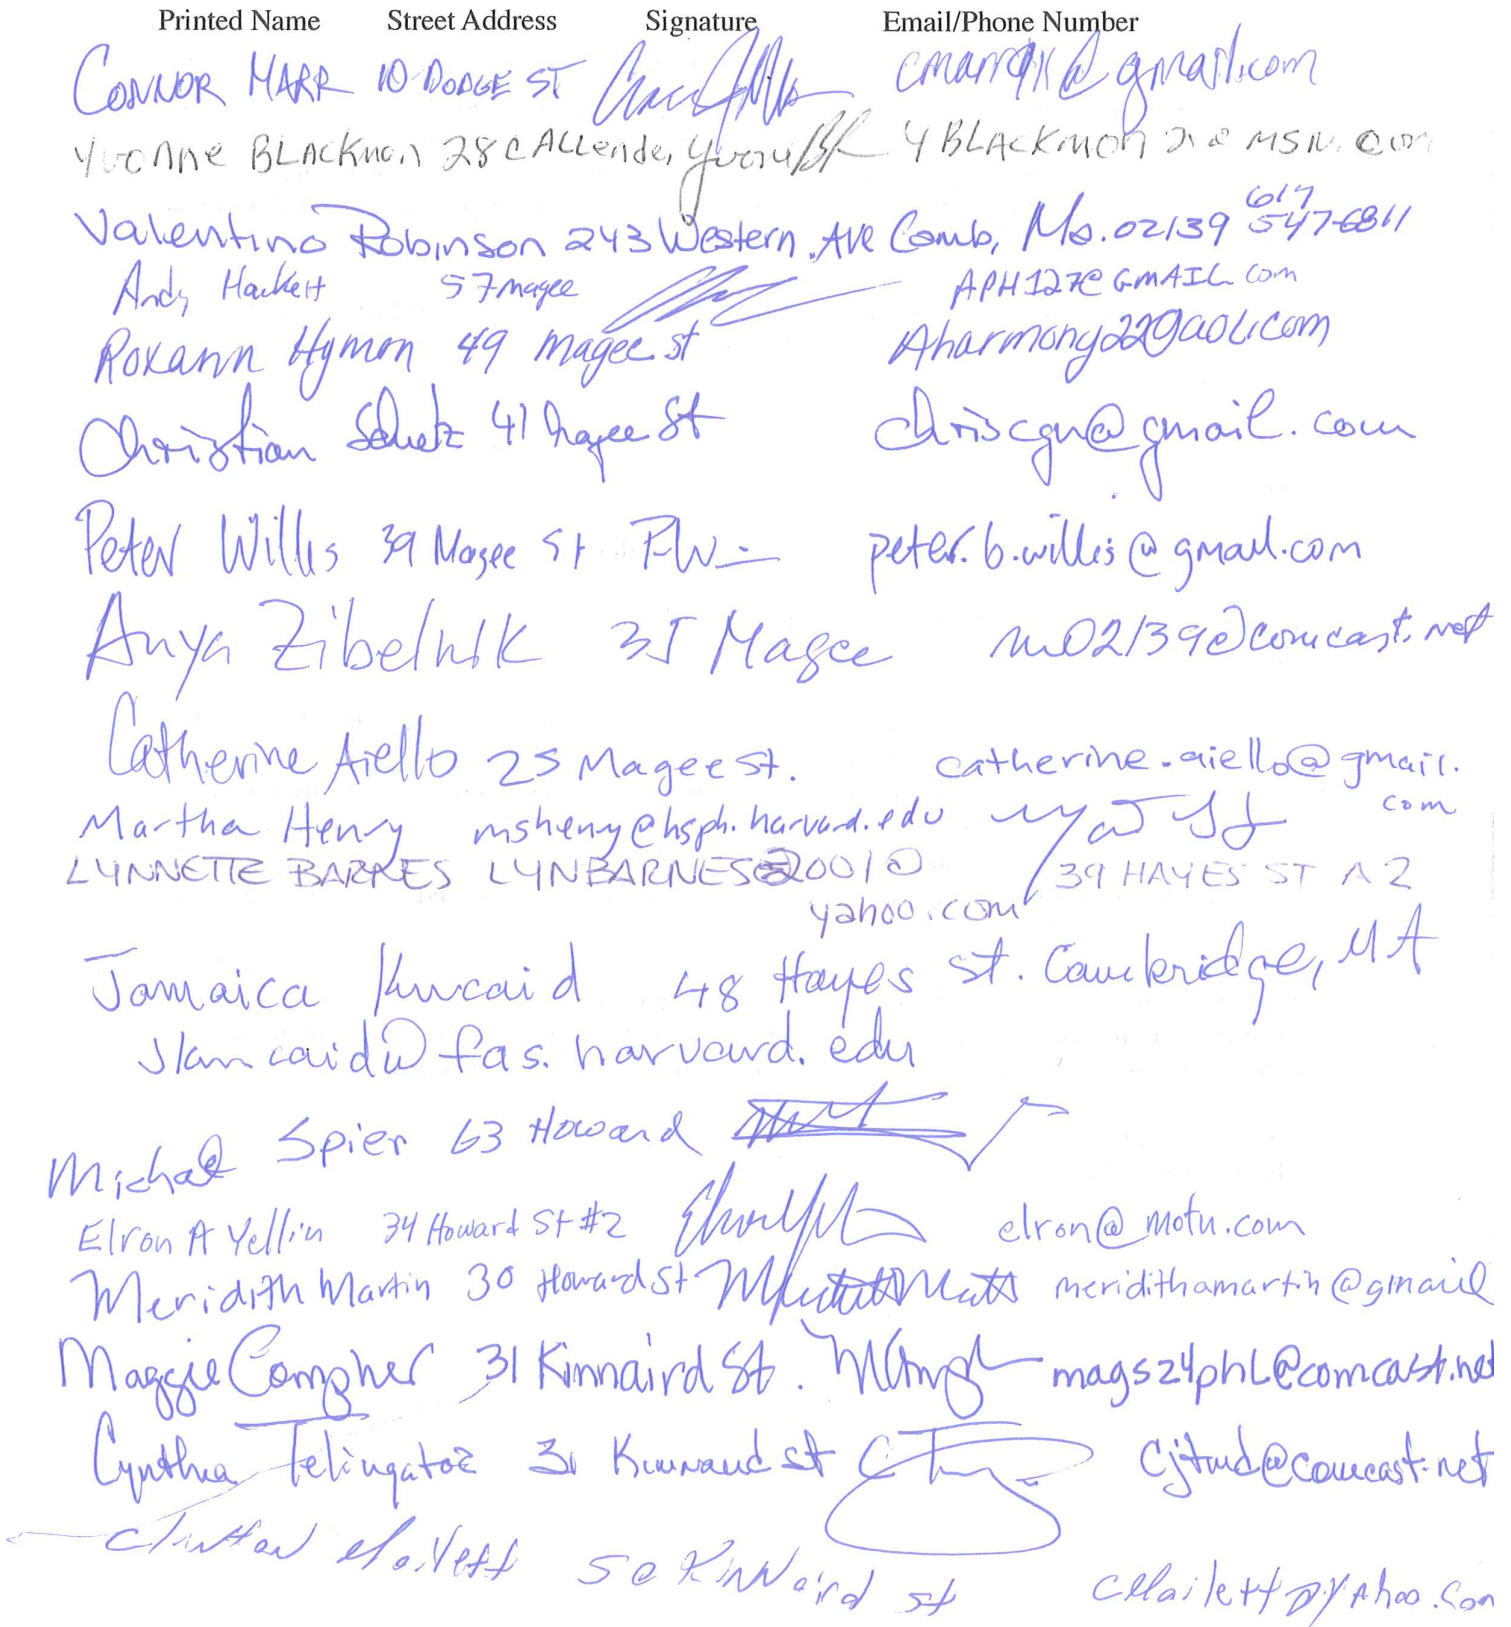 Printed Name Street Address Signature Email/Phone Number
CONNOR MARR 10 DODGE ST @gmail.com
Yvonne BLACKmon 28 CALLender YBLACKmon 21@MSN.com
Valentino Robinson 243 Western Ave Camb, Ma. 02139 617 547-6811
Andy Hackett 57 magee APH127@GMAIL.com
Roxann Hymon 49 magee st Aharmony22@aol.com
Christian Schatz 41 Magee St chriscgn@gmail.com
Peter Willis 39 Magee St PW peter.b.willis@gmail.com
Anya Zibelnik 35 Magee m02139@comcast.net
Catherine Aiello 25 Magee St. catherine.aiello@gmail.
com
Martha Henry mshenry@hsph.harvard.edu
LYNNETTE BARNES LYNBARNES2001@ 39 HAYES ST A2
yahoo.com
Jamaica Kincaid 48 Hayes St. Cambridge, MA
Jkincaid@fas.harvard.edu
Michael Spier 63 Howard
Elron A Yellin 34 Howard St #2 elron@motu.com
Meridith Martin 30 Howard St meridithamartin@gmail
Maggie Compher 31 Kinnaird St. mags24phl@comcast.net
Cynthia Telingator 31 Kinnaird St cjtmd@comcast.net
Clinton Mailett 50 Kinnaird st cMailett@yahoo.com